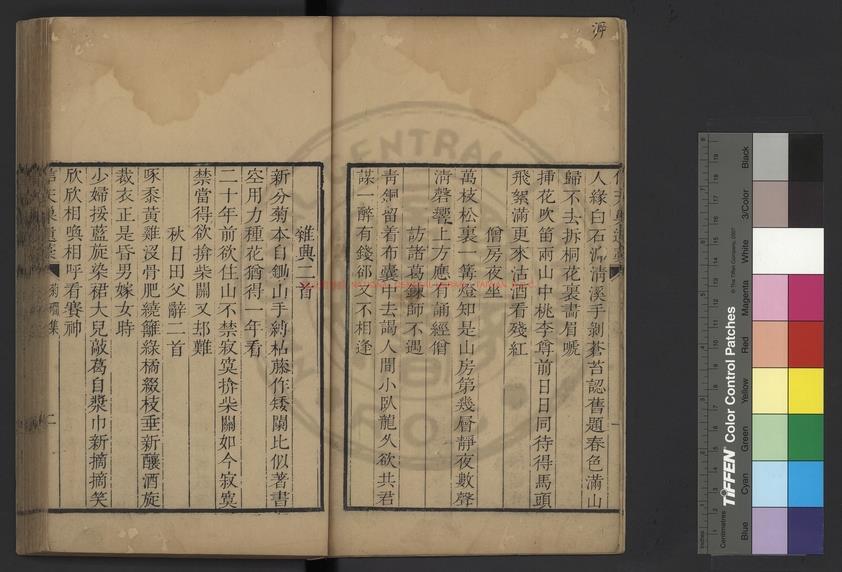 人緣白石沿清溪手剝蒼苔認舊題春色滿山
歸不去拆桐花裏畫眉嗁
挿花吹笛雨山中桃李尊前日日同待得馬頭
飛絮滿更來沽酒看殘紅
僧房夜坐
萬枝松裏一篝燈知是山房第幾層靜夜數聲
清磬響上方應有誦經僧
訪諸葛鍊師不遇
青銅留着布囊中去謁人間小臥龍久欲共君
謀一醉有錢郤又不相逢
雜興二首
新分菊本自鋤山手縛枯藤作矮關比似著書
空用力種花猶得一年看
二十年前欲住山不禁寂寞拚柴關如今寂寞
禁當得欲拚柴關又却難
秋日田父辭二首
啄黍黃雞沒骨肥繞籬綠橘綴枝垂新釀酒旋
裁衣正是昏男嫁女時
少婦挼藍旋染裙大兒敲葛自漿巾新摘摘笑
欣欣相喚相呼看賽神
菊磵集
二
TIFFEN Color Control Patches
© The Tiffen Company, 2007
Centimetres
Inches
Blue
Cyan
Green
Yellow
Red
Magenta
White
3/Color
Black